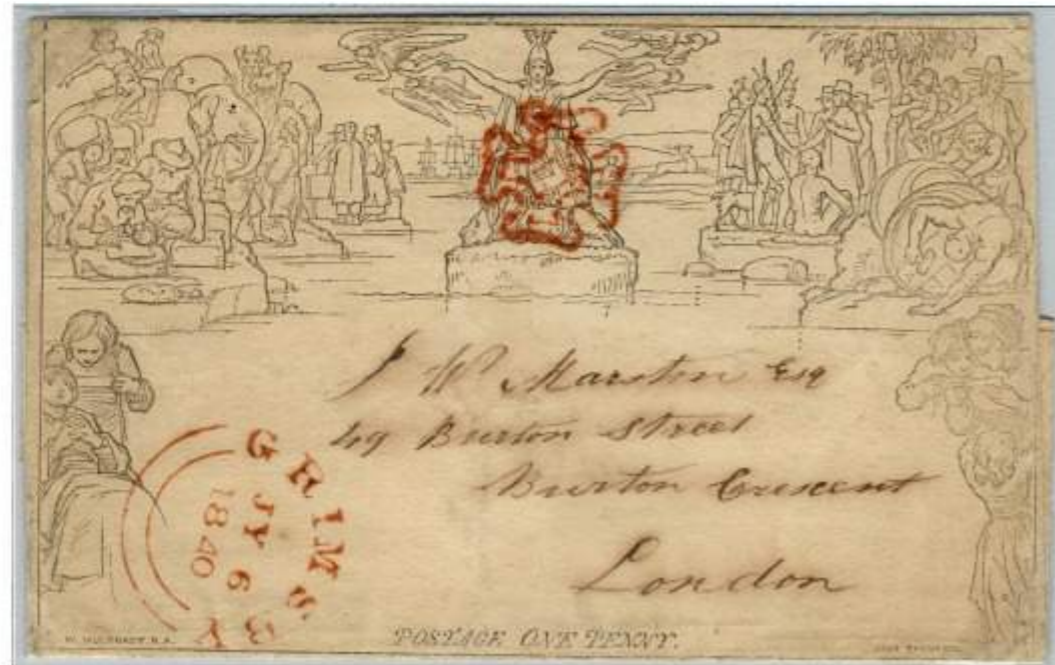 J W Marston Esq
49 Burton Street
Burton Crescent
London
GRIMSBY
JY 6
1840
W. MULREADY. R.A.
POSTAGE ONE PENNY.
JOHN THOMPSON